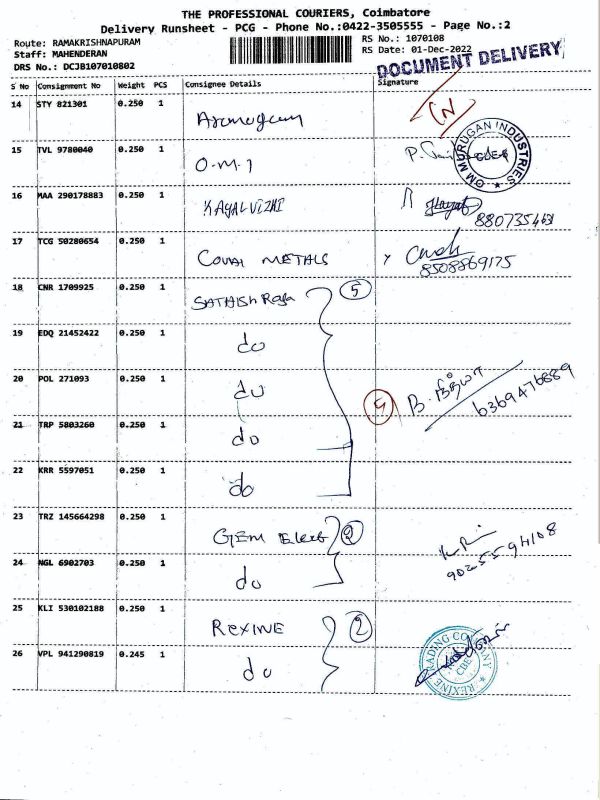 THE PROFESSIONAL COURIERS, Coimbatore
Delivery Runsheet - PCG - Phone No.:0422-3505555 - Page No.:2
Route: RAMAKRISHNAPURAM
RS No.: 1070108
Staff: MAHENDERAN
RS Date: 01-Dec-2022
DRS No.: DCJB107010802
DOCUMENT DELIVERY
S No Consignment No Weight PCS Consignee Details Signature
14 STY 821301 0.250 1
15 TVL 9780040 0.250 1 O.M.I
OM MURUGAN INDUSTRIES
16 MAA 290178883 0.250 1 KAYALVIZHI
17 TCG 50280654 0.250 1 COVAI METALS
8508869175
18 CNR 1709925 0.250 1 SATHISH Raja 5
19 EDQ 21452422 0.250 1 do
20 POL 271093 0.250 1 do
5 B.
6369476889
21 TRP 5803260 0.250 1 do
22 KRR 5597051 0.250 1 do
23 TRZ 145664298 0.250 1 GEM Elect 2
9025594108
24 NGL 6902703 0.250 1 do
25 KLI 530102188 0.250 1 REXINE 2
26 VPL 941290819 0.245 1 do
REXINE TRADING COMPANY
CBE